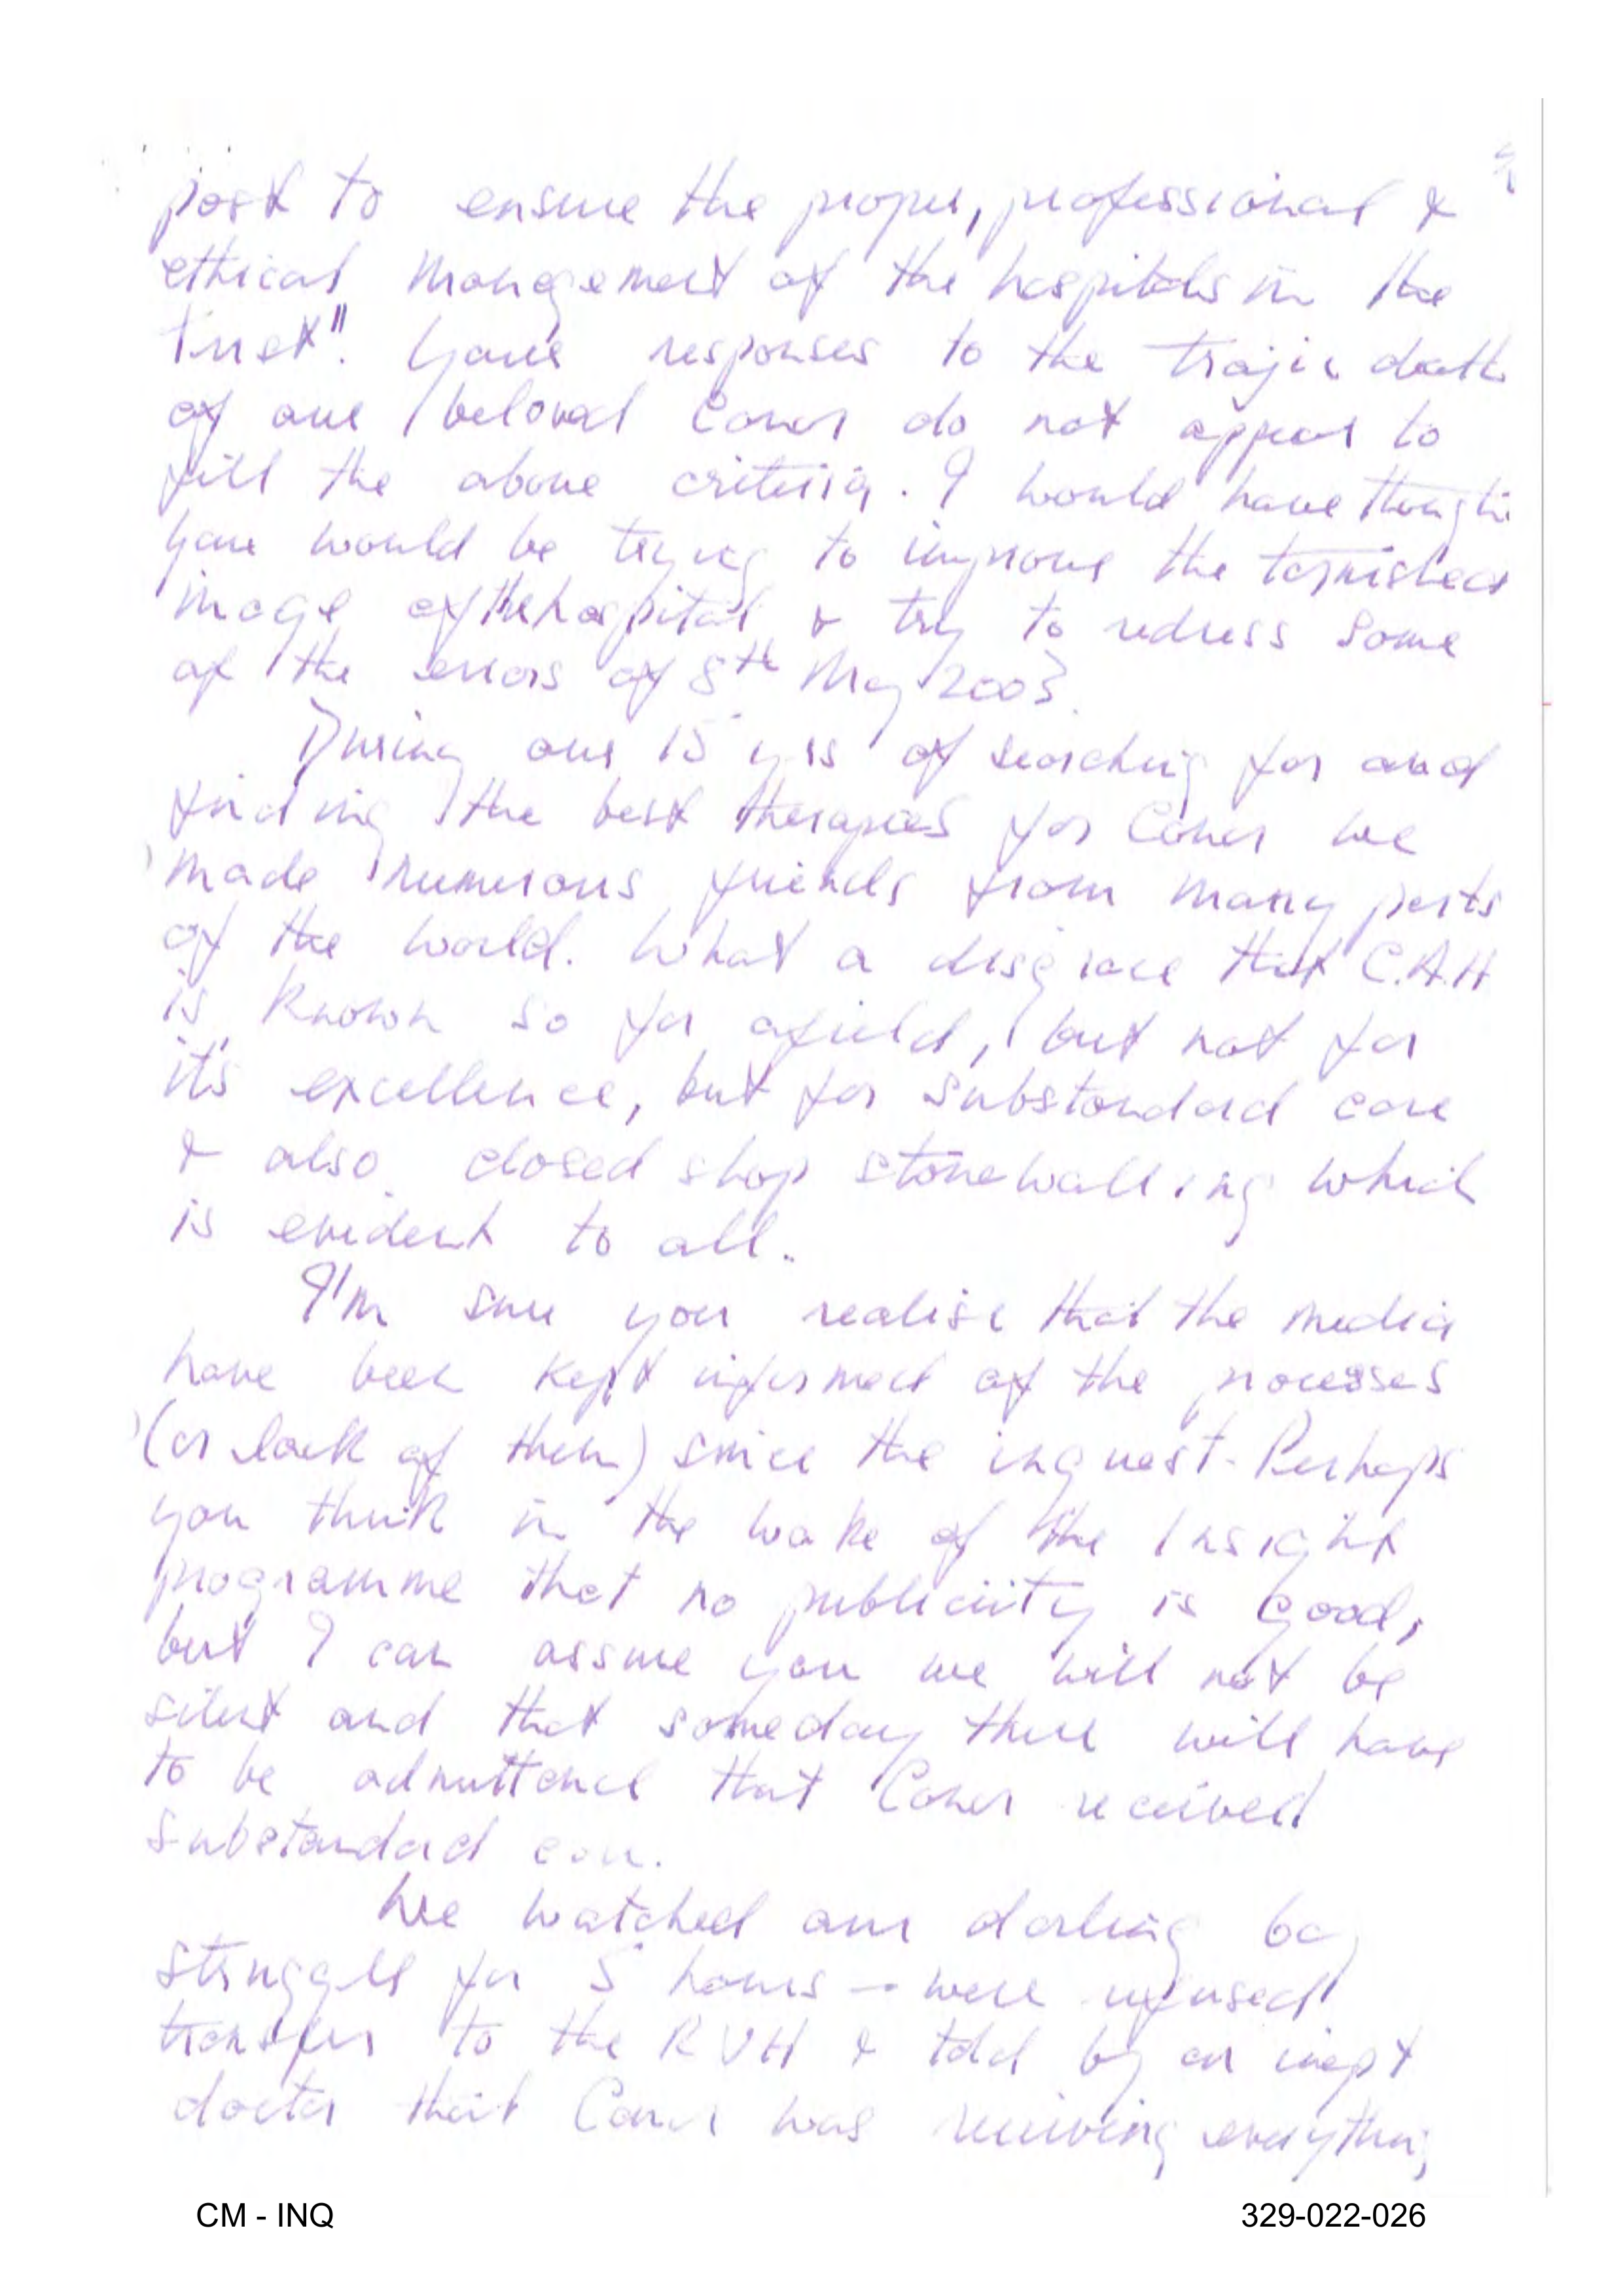 post to ensure the proper, professional &
ethical mangement of the hospitals in the
trust". Your responses to the trajic death
of our beloved Conor do not appear to
fill the above criteria. I would have thought
you would be trying to improve the tarnished
image of the hospital & try to redress some
of the errors of 8th May 2003.
During our 15 yrs of searching for and
finding the best therapies for Conor we
made numerous friends from many parts
of the world. What a disgrace that C.A.H
is known so far afield, but not for
it's excellence, but for substandard care
& also closed shop stonewalling which
is evident to all.
I'm sure you realise that the media
have been kept informed of the processes
(or lack of them) since the inquest. Perhaps
you think in the wake of the Insight
programme that no publicity is good,
but I can assure you we will not be
silent and that someday there will have
to be admittance that Conor received
substandard care.
We watched our darling boy
struggle for 5 hours - were refused
transfer to the RVH & told by an inept
doctor that Conor was receiving everything
CM - INQ
329-022-026